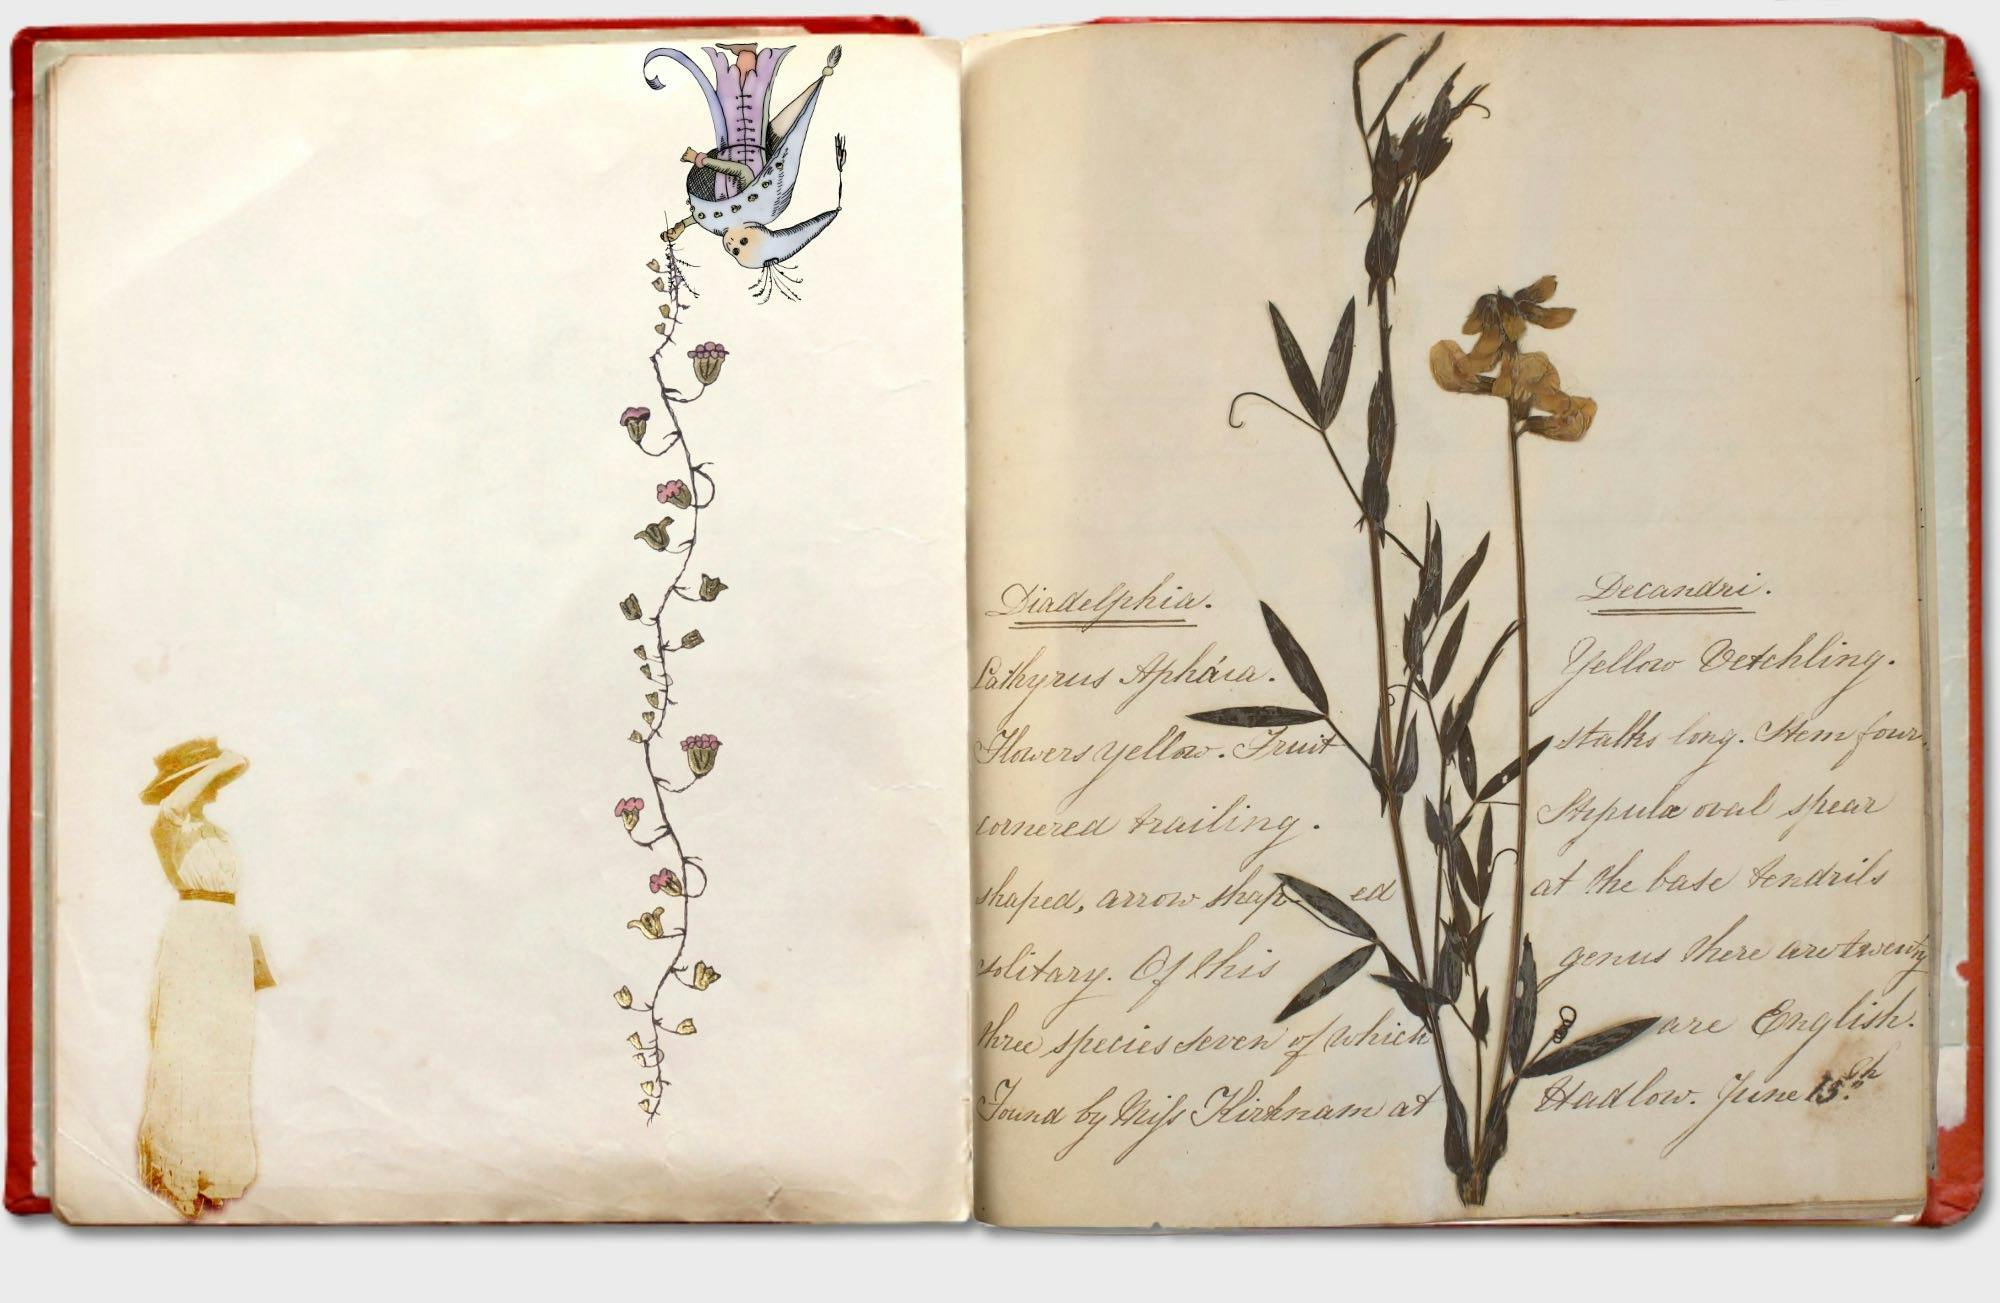 Diadelphia. Decandri.
Lathyrus Apháca. Yellow Vetchling.
Flowers yellow. Fruit stalks long. Stem four
cornered trailing. Stipulæ oval spear
shaped, arrow shap-ed at the base tendrils
solitary. Of this genus there are twenty
three species seven of which are English.
Found by Miſs Kirknam at Hadlow. June 15.th